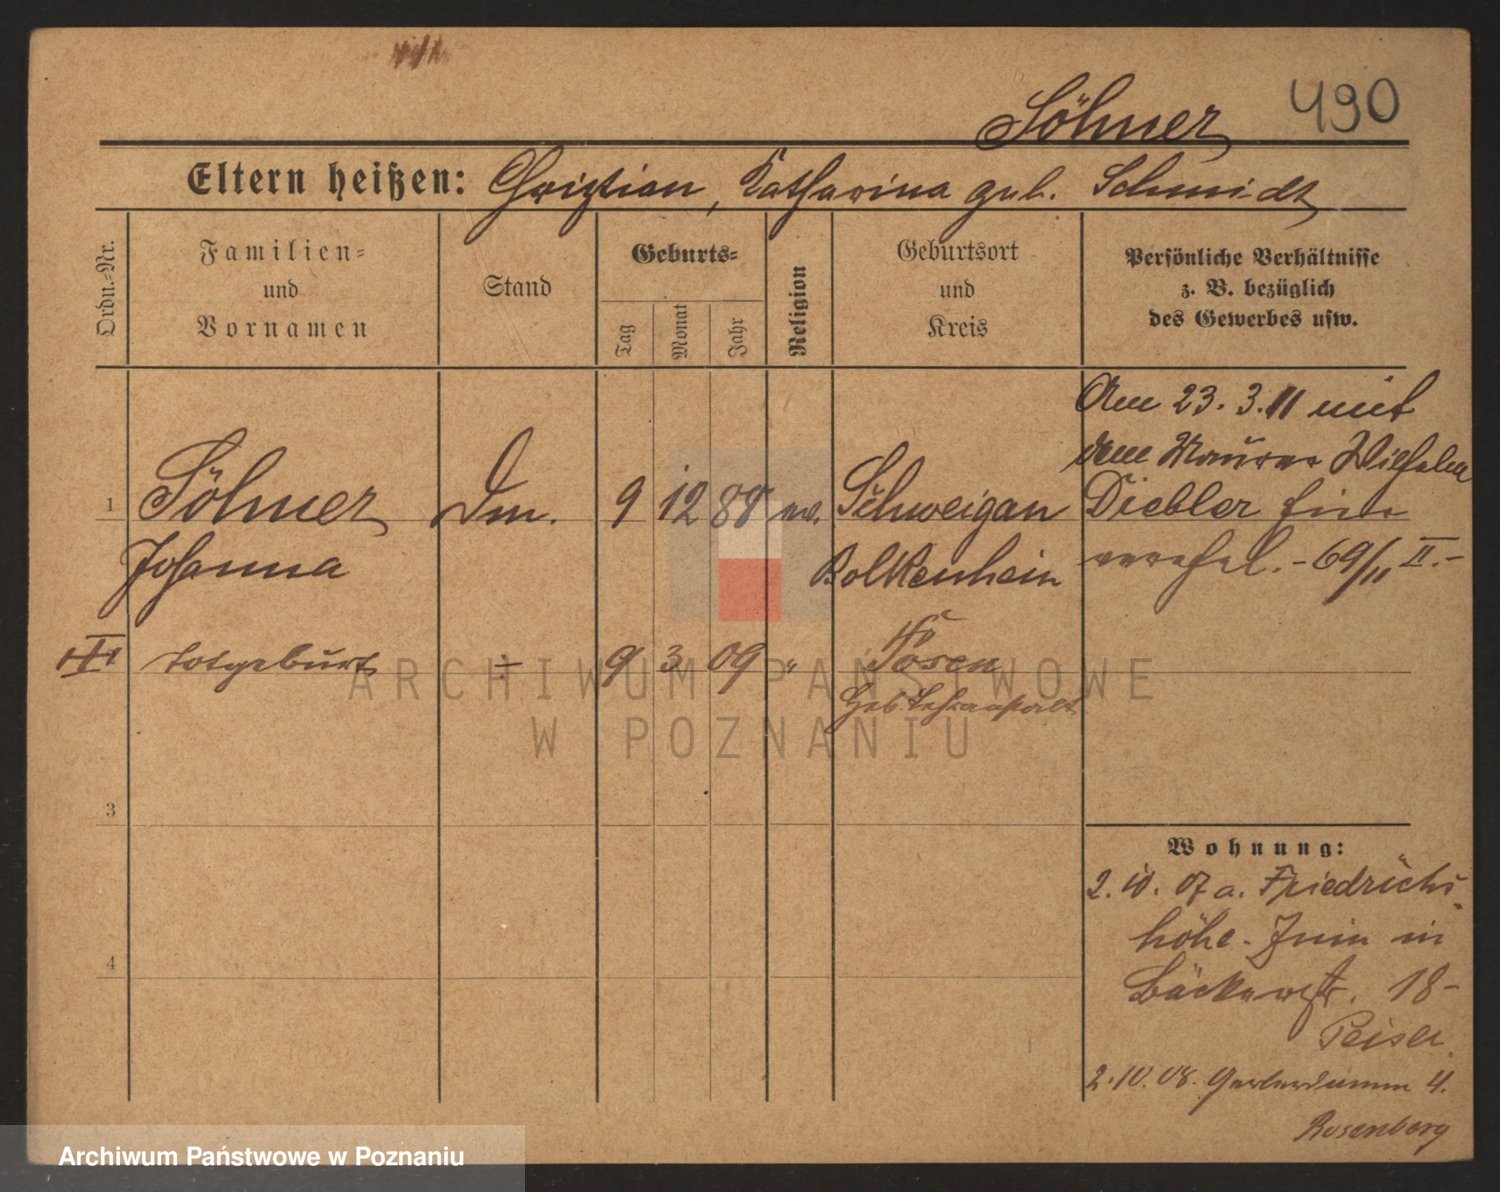 Söhner 490
Eltern heißen: Christian, Katharina geb. Schmidt
Ordn.-Nr.
Familien-
und
Vornamen
Stand
Geburts-
Tag
Monat
Jahr
Religion
Geburtsort
und
Kreis
Persönliche Verhältnisse
z. B. bezüglich
des Gewerbes usw.
1 Söhner Dm. 9 12 88 ev. Schweigan
Johanna Bolkenhein
Am 23. 3. 11 mit
dem Maurer Wilhelm
Diebler hier
verehel. - 69/11 II. -
Totgeburt ÷ 9 3 09 " Posen
Heb. Lehranstalt
3
4
Wohnung:
2. 10. 07 a. Friedrichs-
höhe - Znin in
Bäckerstr. 18-
Peiser
2. 10. 08. Gerberdamm 4.
Rosenberg
ARCHIWUM PAŃSTWOWE
W POZNANIU
Archiwum Państwowe w Poznaniu